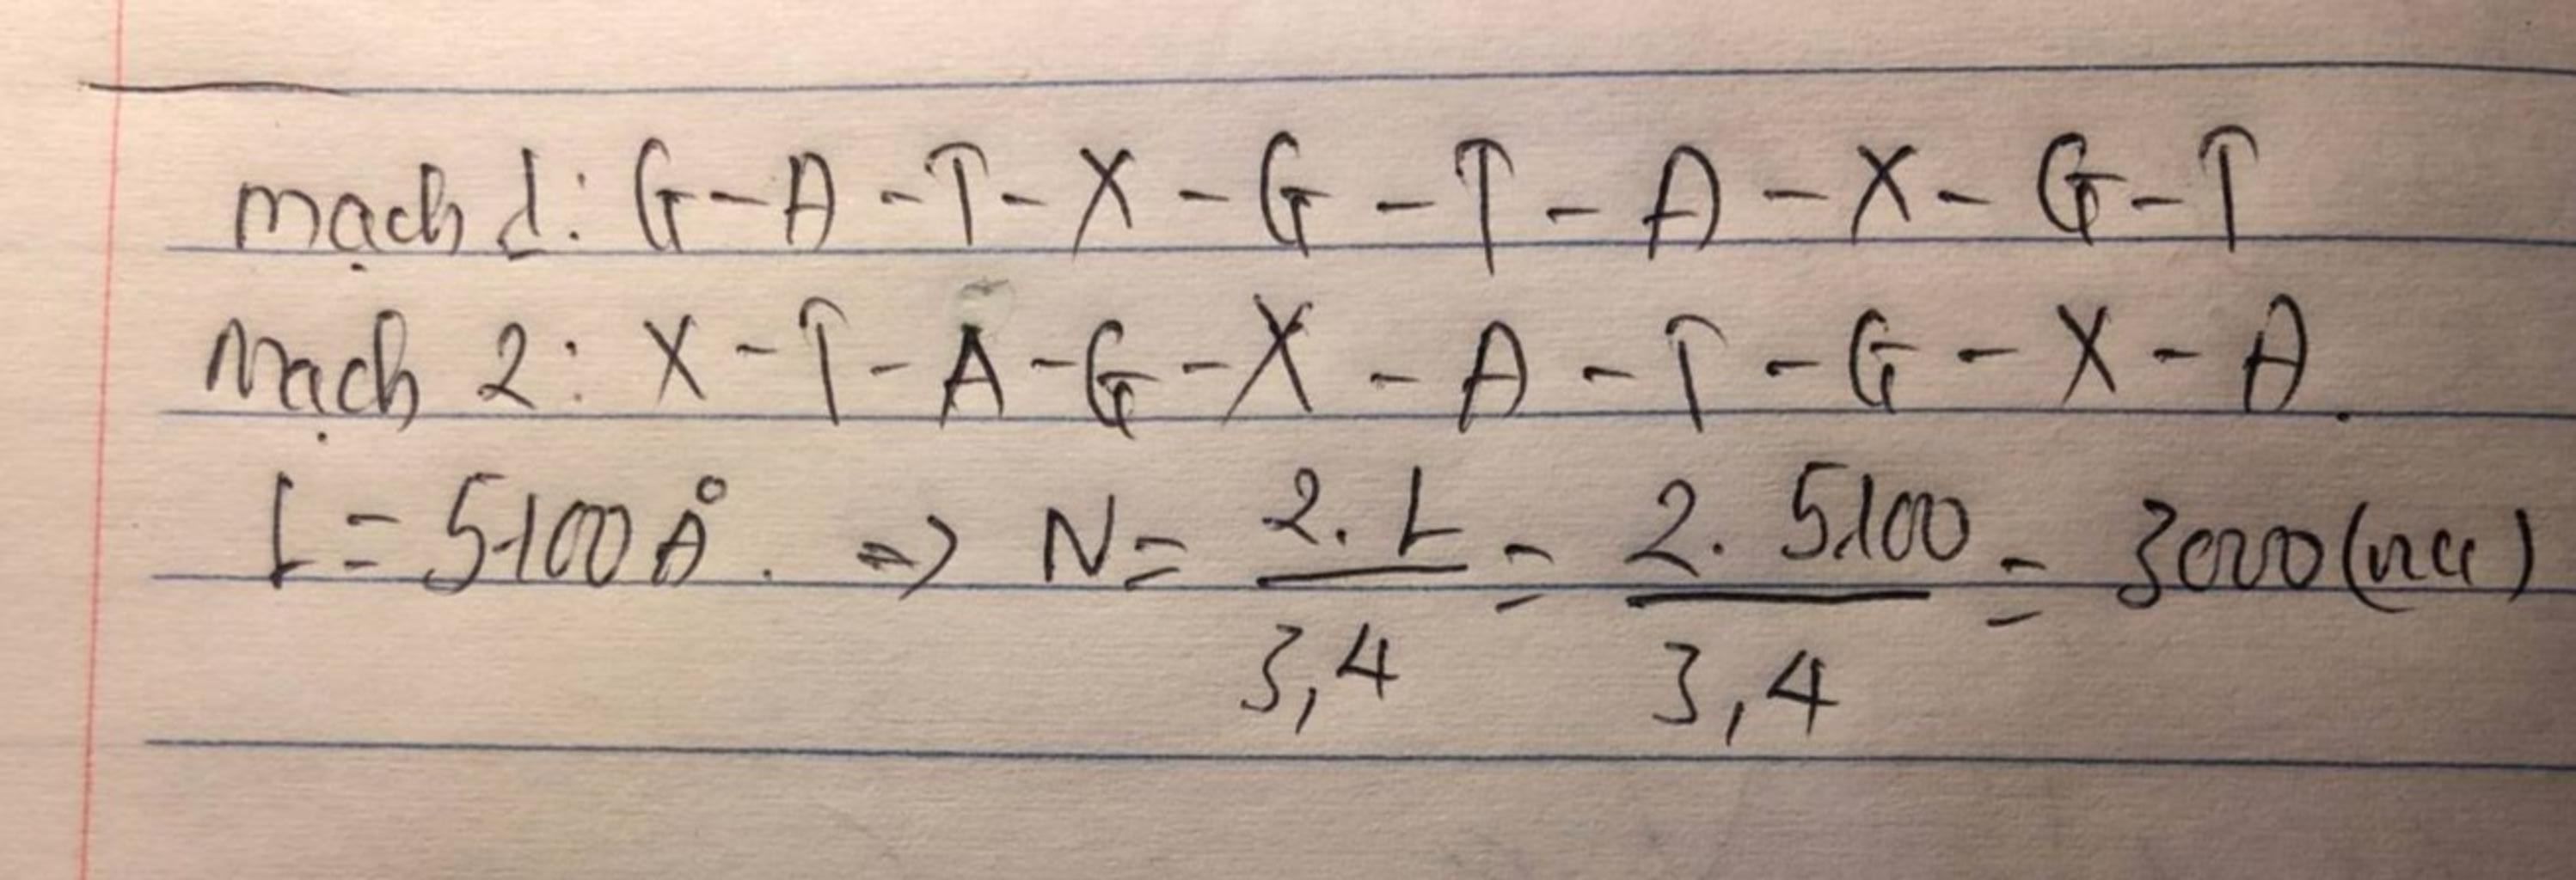 mạch 1: G-A-T-X-G-T-A-X-G-T
Mạch 2: X-T-A-G-X-A-T-G-X-A.
L = 5100 Å. => N = 2.L / 3,4 = 2.5100 / 3,4 = 3000 (nu)